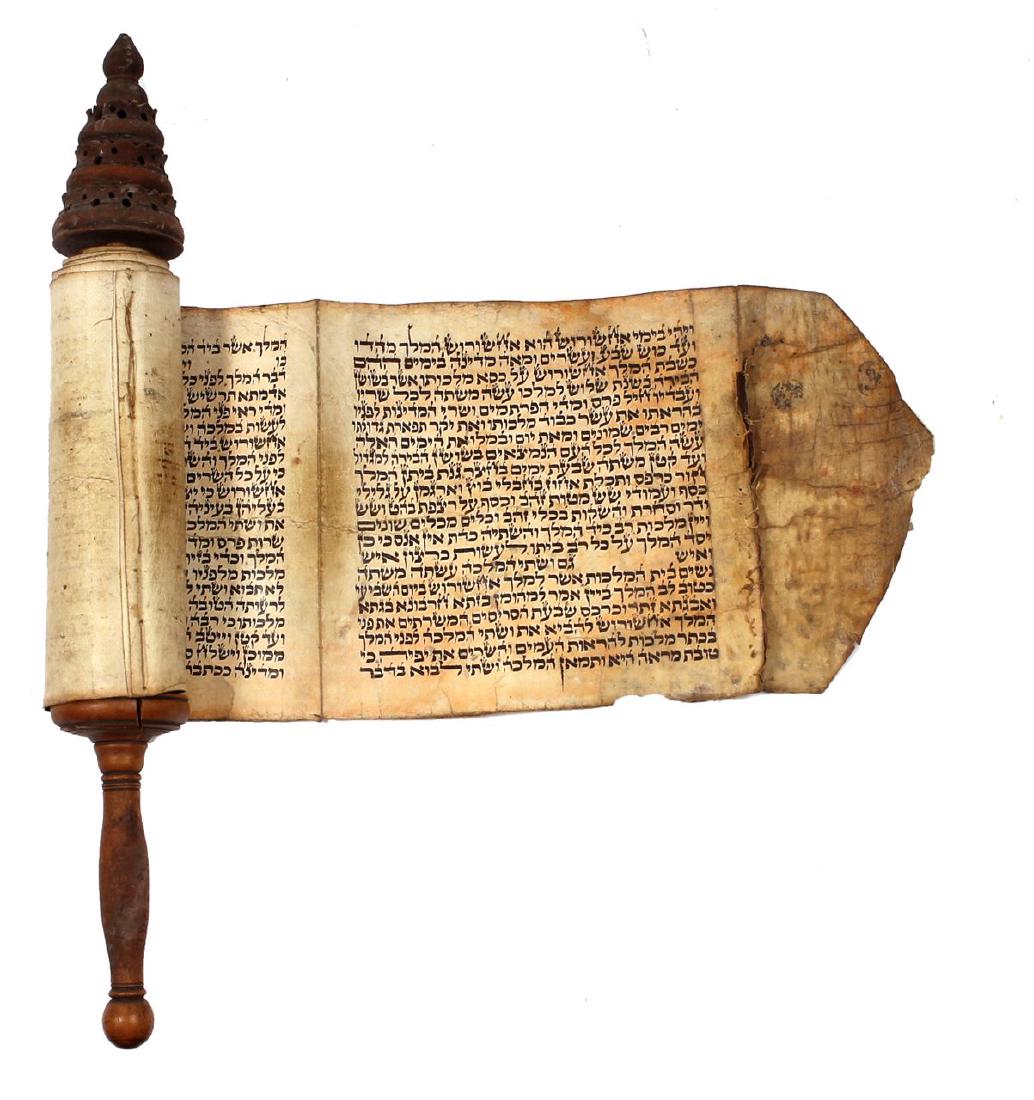 ויהי בימי אחשורוש הוא אחשורוש המלך מהדו
ועד כוש שבע ועשרים ומאה מדינה בימים ההם
כשבת המלך אחשורוש על כסא מלכותו אשר בשושן
הבירה בשנת שלוש למלכו עשה משתה לכל שריו
ועבדיו חיל פרס ומדי הפרתמים ושרי המדינות לפניו
בהראתו את עשר כבוד מלכותו ואת יקר תפארת גדולתו
ימים רבים שמונים ומאת יום ובמלואת הימים האלה
עשה המלך לכל העם הנמצאים בשושן הבירה למגדול
ועד קטן משתה שבעת ימים בחצר גנת ביתן המלך
חור כרפס ותכלת אחוז בחבלי בוץ וארגמן על גלילי
כסף ועמודי שש מטות זהב וכסף על רצפת בהט ושש
ודר וסחרת והשקות בכלי זהב וכלים מכלים שונים
ויין מלכות רב כיד המלך והשתיה כדת אין אנס כי כן
יסד המלך על כל רב ביתו לעשות כרצון איש
ואיש גם ושתי המלכה עשתה משתה
נשים בית המלכות אשר למלך אחשורוש ביום השביעי
כטוב לב המלך ביין אמר למהומן בזתא חרבונא בגתא
ואבגתא זתר וכרכס שבעת הסריסים המשרתים את פני
המלך אחשורוש להביא את ושתי המלכה לפני המלך
בכתר מלכות להראות העמים והשרים את יפיה כי
טובת מראה היא ותמאן המלכה ושתי לבוא בדבר
המלך אשר ביד
כי
דבר המלך לפני כל
אדמתא תרשיש
ומדי ראי פני
לעשות במלכה
אחשורוש ביד
לפני המלך
כי על כל
אחשורוש כי
בעליהן
את ושתי
שרות פרס
המלך וכדי
מלכות מלפניו
לא תבוא ושתי
לרעותה הטובה
מלכותו כי רבה
ועד קטן וייטב
ממוכן וישלח
ומדינה ככתבה